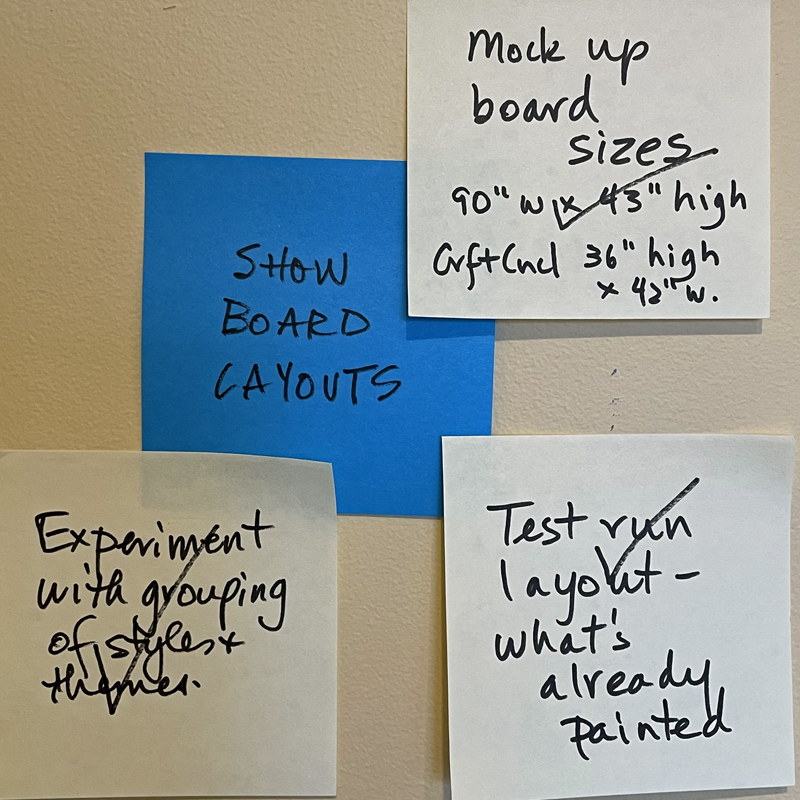 Mock up
board
sizes
90" w x 43" high
Crft Cncl 36" high
x 42" w.
SHOW
BOARD
LAYOUTS
Experiment
with grouping
of styles +
themes.
Test run
layout -
what's
already
painted